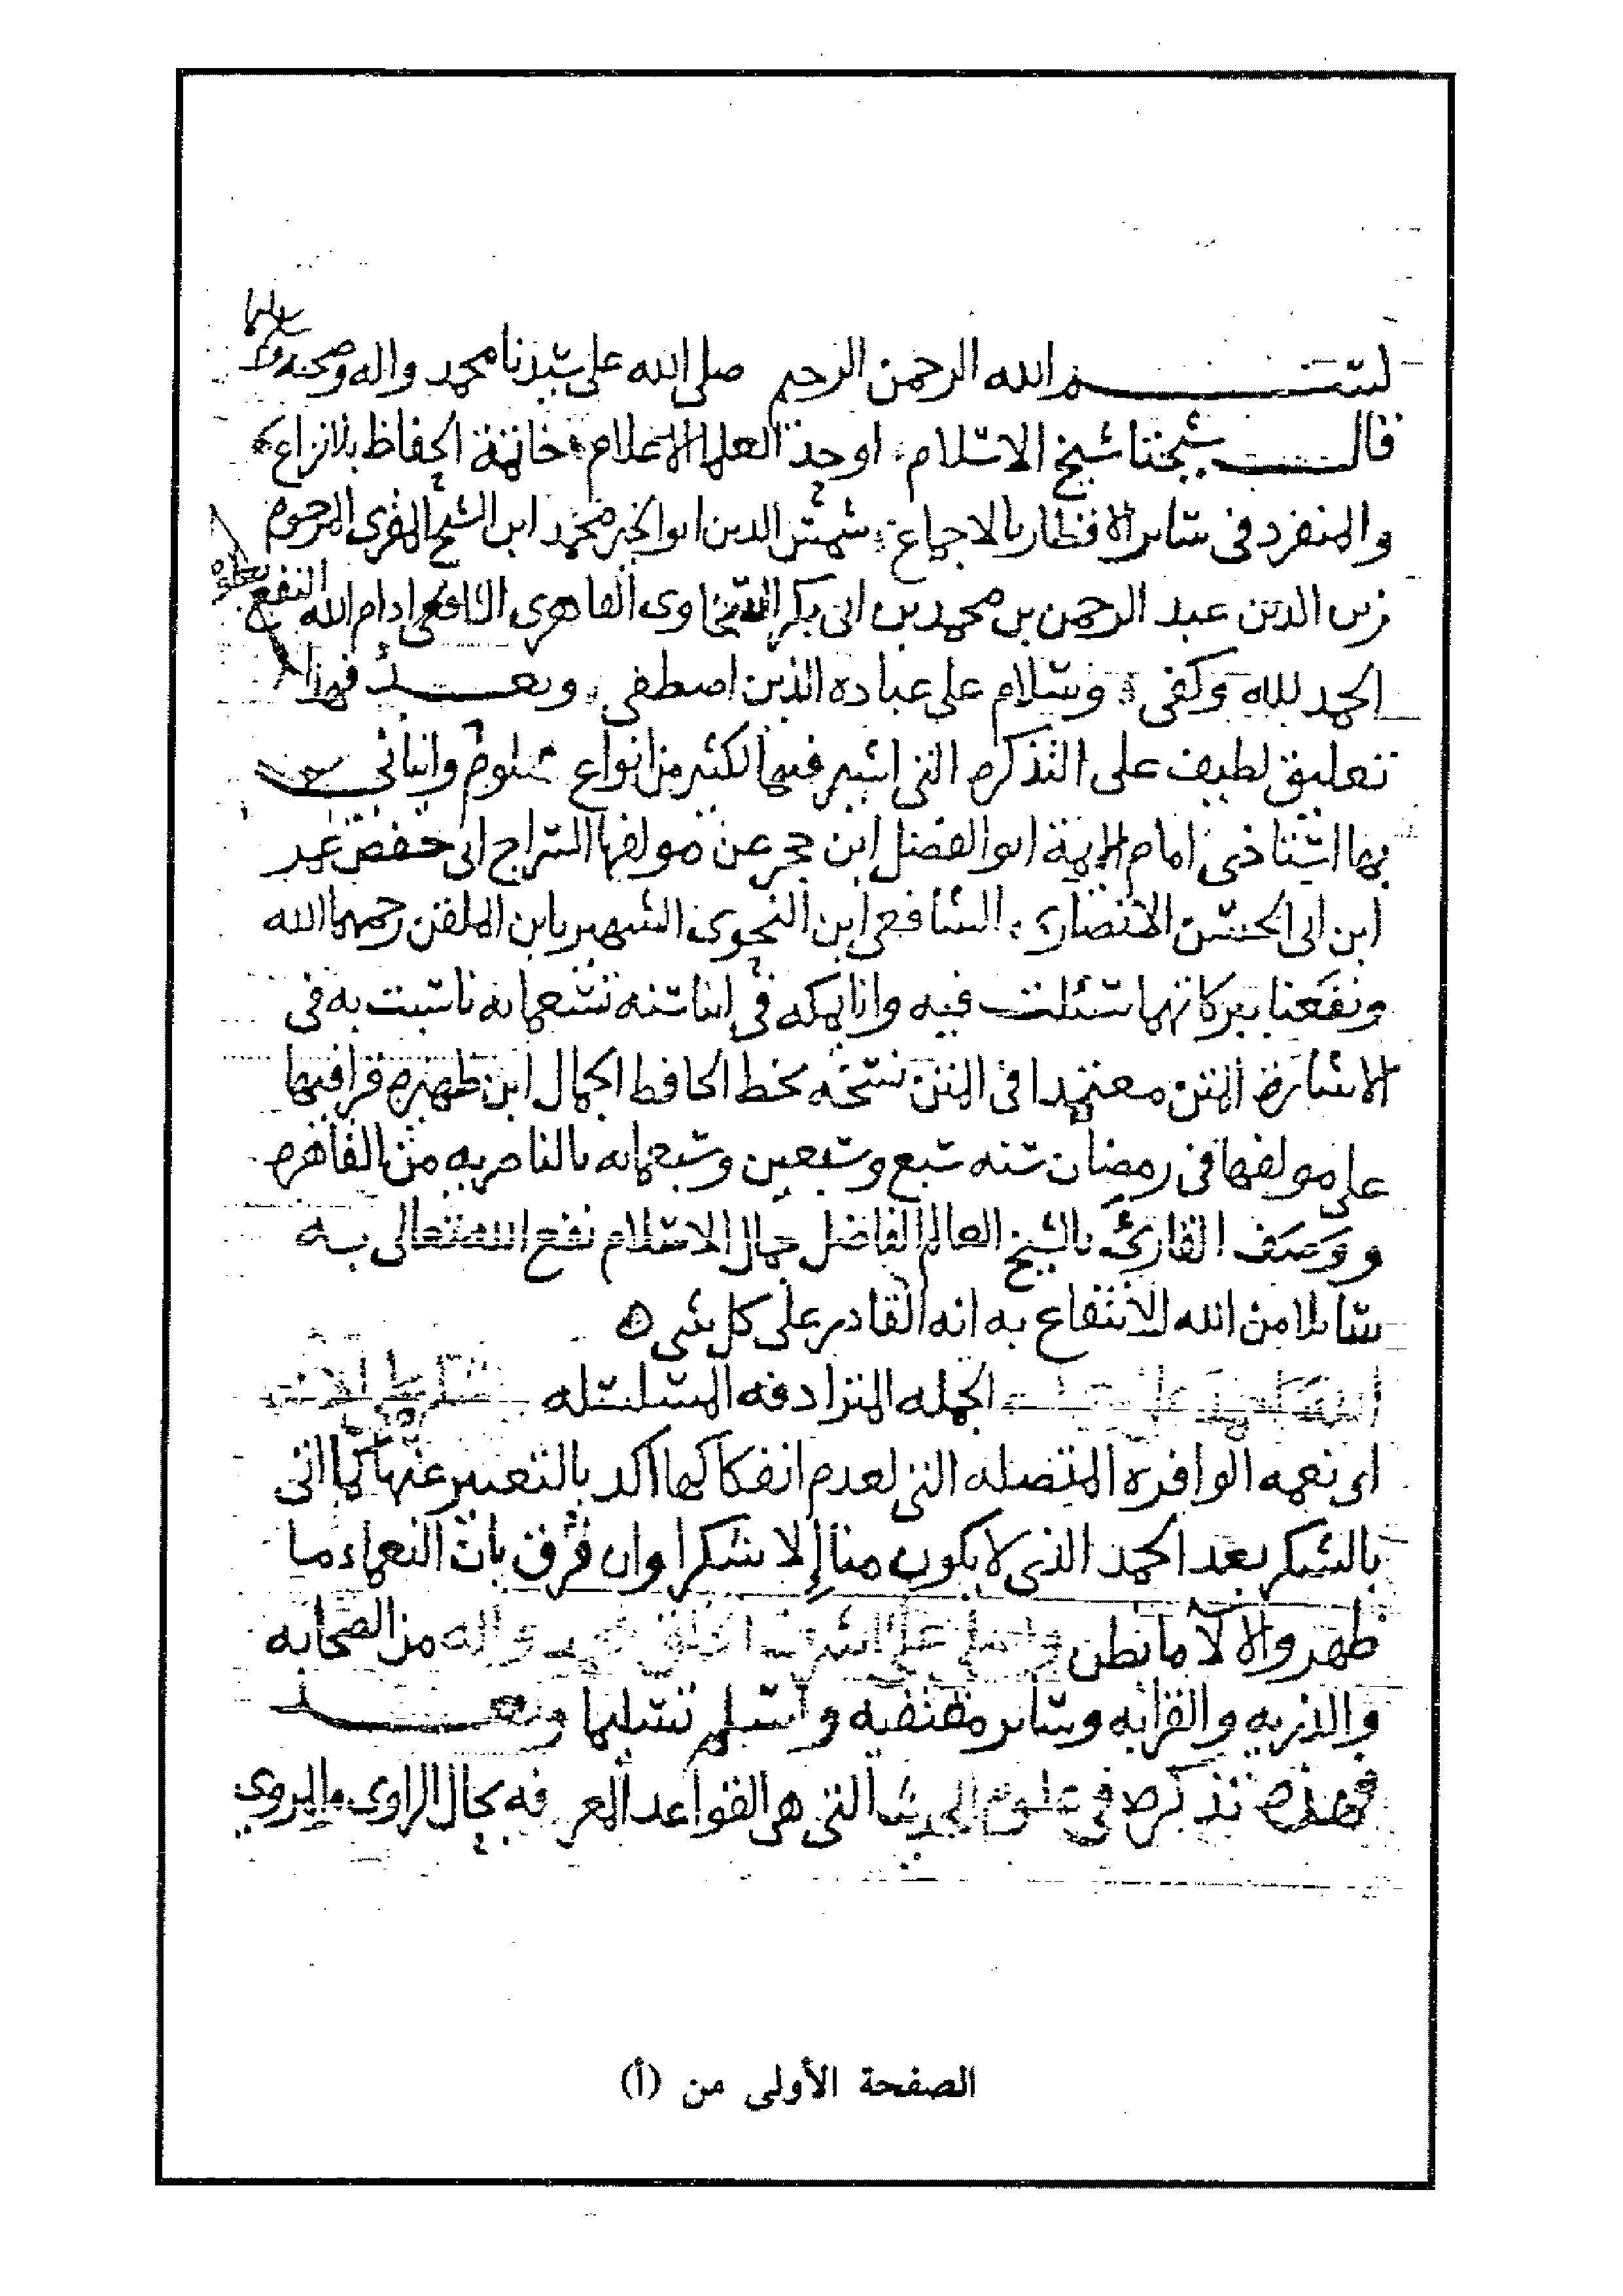 بسم الله الرحمن الرحيم صلى الله على سيدنا محمد واله وصحبه وسلم
قال شيخنا شيخ الاسلام، اوحد العلما الاعلام، خاتمة الحفاظ بلا نزاع،
والمنفرد في سائر الاقطار بالاجماع، شمس الدين ابو الخير محمد ابن الشيخ المقرى المرحوم
زين الدين عبد الرحمن بن محمد بن ابى بكر السخاوى القاهرى الشافعى ادام الله النفع بعلومه
الحمد لله وكفى، وسلام على عباده الذين اصطفى، وبعد فهذا
تعليق لطيف على التذكرة التى اشير فيها لكثير من انواع علومه وانبانى
بها استاذى امام الايمة ابو الفضل ابن حجر عن مولفها السراج ابى حفص عمر
ابن ابى الحسن الانصارى، الشافعى ابن النحوى الشهير بابن الملقن رحمهما الله
ونفعنا ببركاتهما سئلت فيه وانا بمكه فى اثنا سنه تسعمايه ناسبت به فى
الاشارة المتن معتمدا فى المتن نسخه بخط الحافظ الجمال ابن ظهيرة قرا فيها
على مولفها فى رمضان سنه سبع وسبعين وسبعمايه بالناصريه من القاهرة
ووصف القارئ بالشيخ العالم الفاضل جمال الاسلام نفع الله تعالى به
سائلا من الله الانتفاع به انه القادر على كل شى ه
الله احمد على الجمله المترادفه المتسلسله
اى نعمه الوافره المتصله التى لعدم انفكاكها اكد بالتعبير عنها كما اتى
بالشكر بعد الحمد الذى لا يكون منا إلا شكرا وان فرق بان النعماء ما
ظهر والالا ما بطن واصلى على اشرف الخلق محمد واله من الصحابه
والذريه والقرابه وسائر مقتفيه واسلم تسليما وبعد
فهذه تذكرة في علوم الحديث التى هى القواعد المعرفه بحال الراوى والمروي
الصفحة الأولى من (أ)